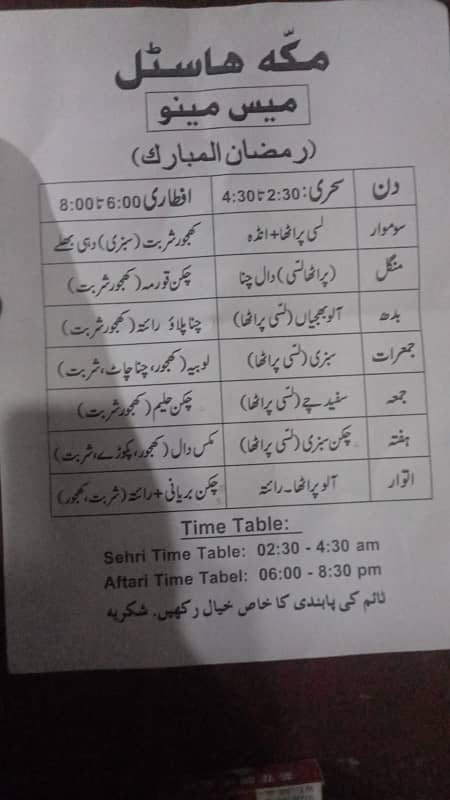 مکّہ ھاسٹل
میس مینو
(رمضان المبارک)
دن سحری: 2:30 تا 4:30 افطاری 6:00 تا 8:00
سوموار لسی پراٹھا+انڈہ کھجور شربت (سبزی) دہی بھلے
منگل (پراٹھا لسّی) دال چنا چکن قورمہ (کھجور شربت)
بدھ آلو بھجیاں (لسّی پراٹھا) چنا پلاؤ رائتہ (کھجور شربت)
جمعرات سبزی (لسّی پراٹھا) لوبیہ (کھجور، چنا چاٹ، شربت)
جمعہ سفید چے (لسّی پراٹھا) چکن حلیم (کھجور شربت)
ہفتہ چکن سبزی (لسّی پراٹھا) مکس دال (کھجور، پکوڑے، شربت)
اتوار آلو پراٹھا۔ رائتہ چکن بریانی + رائتہ (شربت، کھجور)
Time Table:
Sehri Time Table: 02:30 - 4:30 am
Aftari Time Tabel: 06:00 - 8:30 pm
ٹائم کی پابندی کا خاص خیال رکھیں. شکریہ